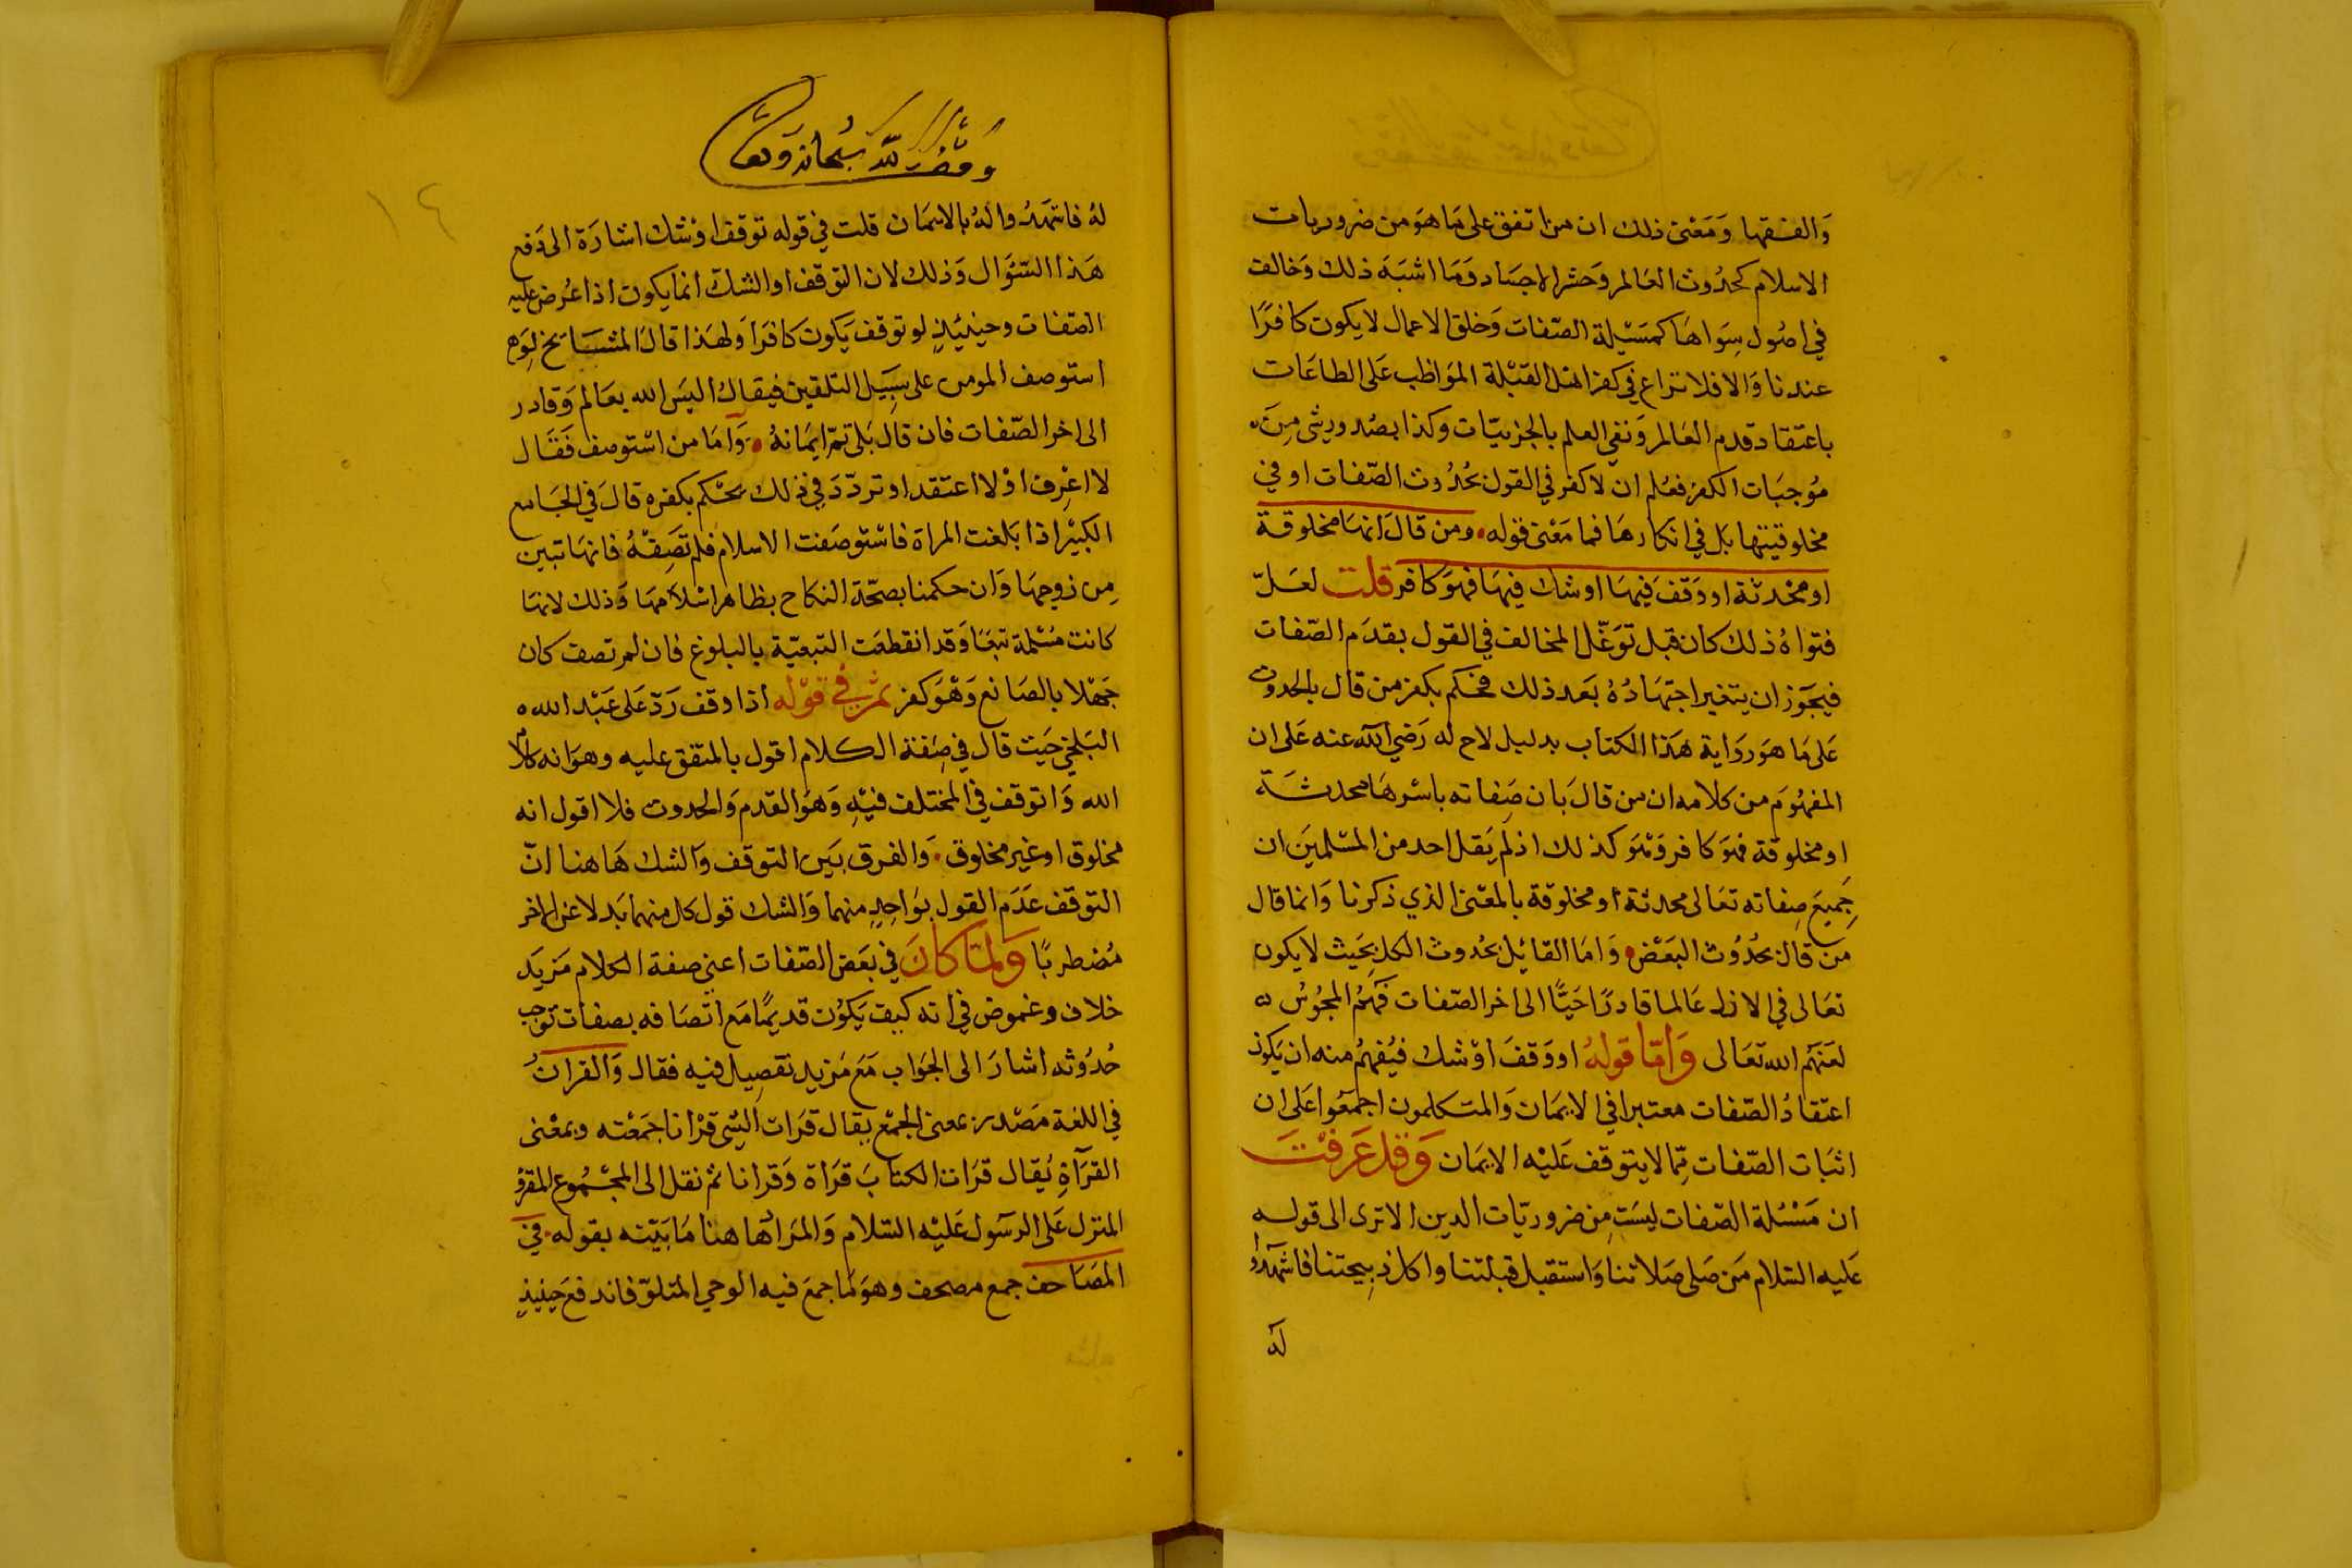 وَالفقها وَمَعْنى ذلك ان من اتفق على مَا هوَ من ضروريات
الاسلام كحدُوث العَالم وَحشر الاجسَاد وَمَا اشبَهَ ذلك وَخالف
في اصُول سِوَاهَا كمسَئيلة الصّفات وَخلق الاعمال لا يكون كافرًا
عندنا وَالا فلا نزاع في كفر اهْل القبْلة الموَاظب عَلى الطاعَات
باعتقاد قدم العَالم وَنفي العلم بالجزييّات وكذا بصُدور شئ مِن
مُوجبَات الكفر فعُلم ان لا كفر في القول بحُدُوث الصّفات او في
مخلوقيتها بل في انكارهَا فما مَعْنى قوله ومن قالَ انهَا مخلوقة
او محْدثة او وَقفَ فيهَا او شك فيهَا فهوَ كافر قلت لعَلّ
فتواهُ ذلكَ كان قبل توَغّل المخالف في القول بقدَم الصّفات
فيجَوز ان يتغير اجتهَادُهُ بَعد ذلك فحكم بكفر من قال بالحدوث
عَلى مَا هوَ روَاية هَذا الكتاب بدليل لاح له رَضي الله عنه عَلى ان
المفهُومَ من كلامه ان من قالَ بان صِفاته باسْرهَا محدثة
او مخلوقة فهوَ كافر وَهوَ كذلك اذ لم يَقل احد من المسْلمينَ ان
جَميعَ صِفاته تعَالى محدثة او مخلوقة بالمعْنى الذي ذكرنا وَانما قال
من قال بحُدُوث البَعْض وَامَا القائِل بحُدوث الكل بحَيث لا يكون
تعَالى في الازل عَالما قادرًا حَيًّا الى اخر الصّفات فَهُمُ المجُوسُ
لعَنَهُم الله تعَالى وَامّا قولهُ او وَقفَ اوْ شك فيُفهَمُ منه ان يَكونَ
اعتقادُ الصّفات معتبرا في الايمَان وَالمتكلمون اجمَعُوا عَلى ان
اثبَات الصّفات مِمّا لا يتوقف عَليْه الايمَان وَقد عَرفْتَ
ان مَسْئلة الصّفات ليسَت مِن ضروريّات الدين الا ترى الى قوله
عَليه السَّلام مَن صَلى صَلاتنا وَاستقبل قبلتنا واكل ذبيحتنا فاشهَدُوا
لهُ
وفقف لله سبحانه وتعالى
١٤
لهُ فاشهَدُوا لهُ بالايمَان قلت في قوله توقف اوْ شك اشارَة الى دَفع
هَذا السّؤَال وَذلك لان التوقف او الشكّ انما يكون اذا عُرض عليه
الصّفات وحينئيذٍ لو توقف يَكون كافرَا وَلهَذا قالَ المشَايخ لوَ
استوصف المومن على سبِيَل التلقين فيقالُ اليسَ الله بعَالم وَقادر
الى اخر الصّفات فان قال بَلى تمّ ايمَانهُ وَامَا من اسْتوصف فقَال
لا اعْرف اوْ لا اعتقد او تردّدَ في ذلك يحْكم بكفره قالَ في الجَامع
الكبيْر اذا بَلغت المراة فاسْتوصَفت الاسلام فلم تصِفهُ فانهَا تبين
مِن زوجهَا وَان حكمنا بصحّة النكاح بظاهر اسْلامهَا وَذلك لانهَا
كانت مسْلمة تبَعًا وَقد انقطعَت التبعيّة بالبلوغ فان لم تصف كان
جَهْلا بالصَانع وَهْوَ كفر ثمّ في قوْله اذا وقف رَدّ عَلى عَبْد الله
البَلخي حَيث قال في صِفة الكلام اقول بالمتفق عليه وهوَ انه كلام
الله وَاتوقف في المختلف فيْهِ وَهوَ القدم وَالحدوث فلا اقول انه
مخلوق او غير مخلوق وَالفرق بَين التوقف وَالشك هَاهنا انّ
التوقف عَدَم القول بوَاحِدٍ منهما وَالشك قول كل منهما بَدلا عن الاخر
مُضطربًا وَلمّا كانَ في بَعَض الصّفات اعني صفة الكلام مَزيَد
خلاف وغموض في انه كيف يَكوُن قديمًا مَع اتصَافه بصفات توجب
حُدُوثه اشارَ الى الجَوَاب مَعَ مَزيدِ تفصِيل فيه فقال وَالقران
في اللغة مَصْدر بمعنى الجمْع يقال قرَات الشئ قرْانا جمَعْته وبمعْنى
القرَآةِ يُقال قرَات الكتابَ قرَاة وَقرانا ثم نقل الى المجْمُوع المقرُو
المنزل عَلى الرسَول عَليْه السّلام وَالمرَاد هَاهنا مَا بَيّنه بقوله في
المصَاحف جمع مصحف وهوَ مَا جمعَ فيه الوحي المتلوّ فاندفعَ حينيذٍ